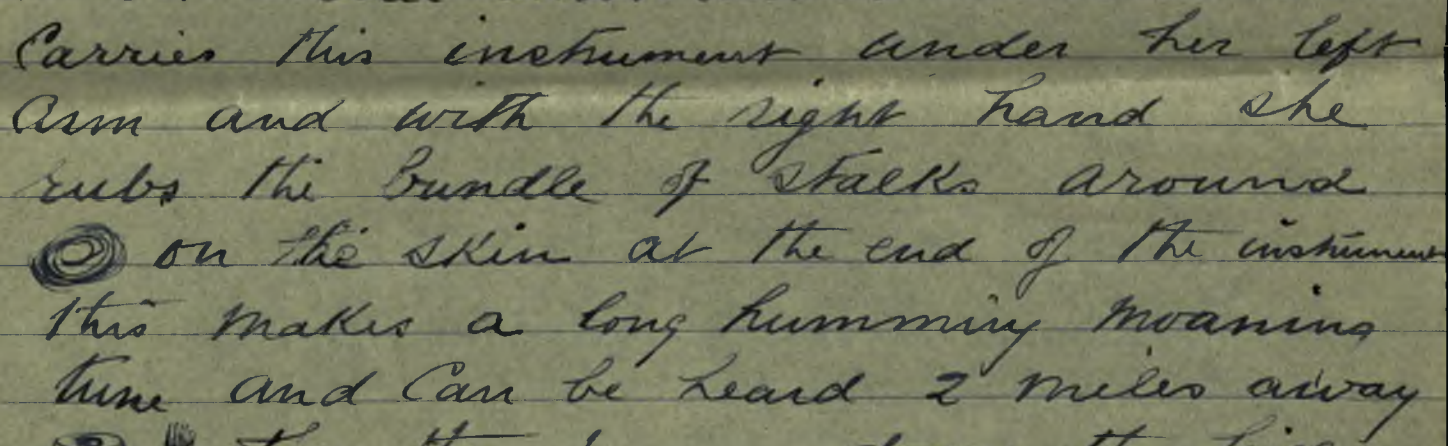 Carries this instrument under her left
arm and with the right hand she
rubs the bundle of stalks around
on the skin at the end of the instrument
this makes a long humming moaning
tune and Can be heard 2 miles away